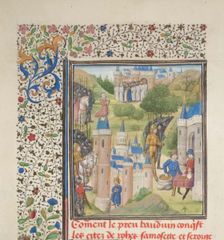 Coment le preu bauduin conqst
les citez de rohes samosete et seroure